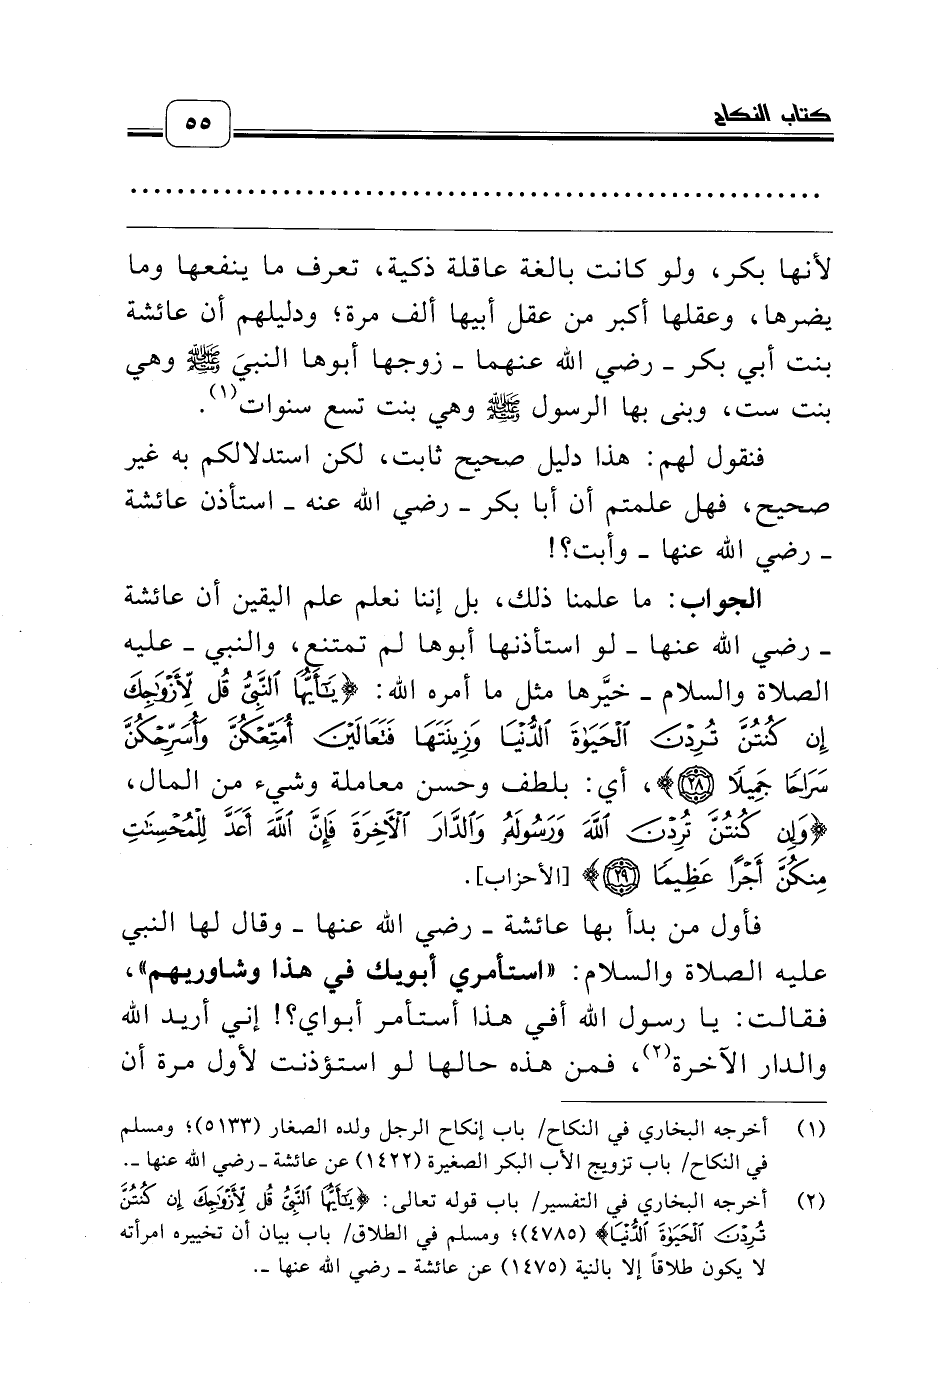 كتاب النكاح
٥٥
لأنها بكر، ولو كانت بالغة عاقلة ذكية، تعرف ما ينفعها وما
يضرها، وعقلها أكبر من عقل أبيها ألف مرة؛ ودليلهم أن عائشة
بنت أبي بكر ـ رضي الله عنهما ـ زوجها أبوها النبيَ ﷺ وهي
بنت ست، وبنى بها الرسول ﷺ وهي بنت تسع سنوات(١).
فنقول لهم: هذا دليل صحيح ثابت، لكن استدلالكم به غير
صحيح، فهل علمتم أن أبا بكر ـ رضي الله عنه ـ استأذن عائشة
ـ رضي الله عنها ـ وأبت؟!
الجواب: ما علمنا ذلك، بل إننا نعلم علم اليقين أن عائشة
ـ رضي الله عنها ـ لو استأذنها أبوها لم تمتنع، والنبي ـ عليه
الصلاة والسلام ـ خيَّرها مثل ما أمره الله: ﴿يَٰٓأَيُّهَا ٱلنَّبِيُّ قُل لِّأَزْوَٰجِكَ
إِن كُنتُنَّ تُرِدْنَ ٱلْحَيَوٰةَ ٱلدُّنْيَا وَزِينَتَهَا فَتَعَالَيْنَ أُمَتِّعْكُنَّ وَأُسَرِّحْكُنَّ
سَرَاحًا جَمِيلًا ٢٨﴾، أي: بلطف وحسن معاملة وشيء من المال،
﴿وَإِن كُنتُنَّ تُرِدْنَ ٱللَّهَ وَرَسُولَهُۥ وَٱلدَّارَ ٱلْءَاخِرَةَ فَإِنَّ ٱللَّهَ أَعَدَّ لِلْمُحْسِنَٰتِ
مِنكُنَّ أَجْرًا عَظِيمًا ٢٩﴾ [الأحزاب].
فأول من بدأ بها عائشة ـ رضي الله عنها ـ وقال لها النبي
عليه الصلاة والسلام: «استأمري أبويك في هذا وشاوريهم»،
فقالت: يا رسول الله أفي هذا أستأمر أبواي؟! إني أريد الله
والدار الآخرة(٢)، فمن هذه حالها لو استؤذنت لأول مرة أن
(١) أخرجه البخاري في النكاح/ باب إنكاح الرجل ولده الصغار (٥١٣٣)؛ ومسلم
في النكاح/ باب تزويج الأب البكر الصغيرة (١٤٢٢) عن عائشة ـ رضي الله عنها ـ.
(٢) أخرجه البخاري في التفسير/ باب قوله تعالى: ﴿يَٰٓأَيُّهَا ٱلنَّبِيُّ قُل لِّأَزْوَٰجِكَ إِن كُنتُنَّ
تُرِدْنَ ٱلْحَيَوٰةَ ٱلدُّنْيَا﴾ (٤٧٨٥)؛ ومسلم في الطلاق/ باب بيان أن تخييره امرأته
لا يكون طلاقاً إلا بالنية (١٤٧٥) عن عائشة ـ رضي الله عنها ـ.